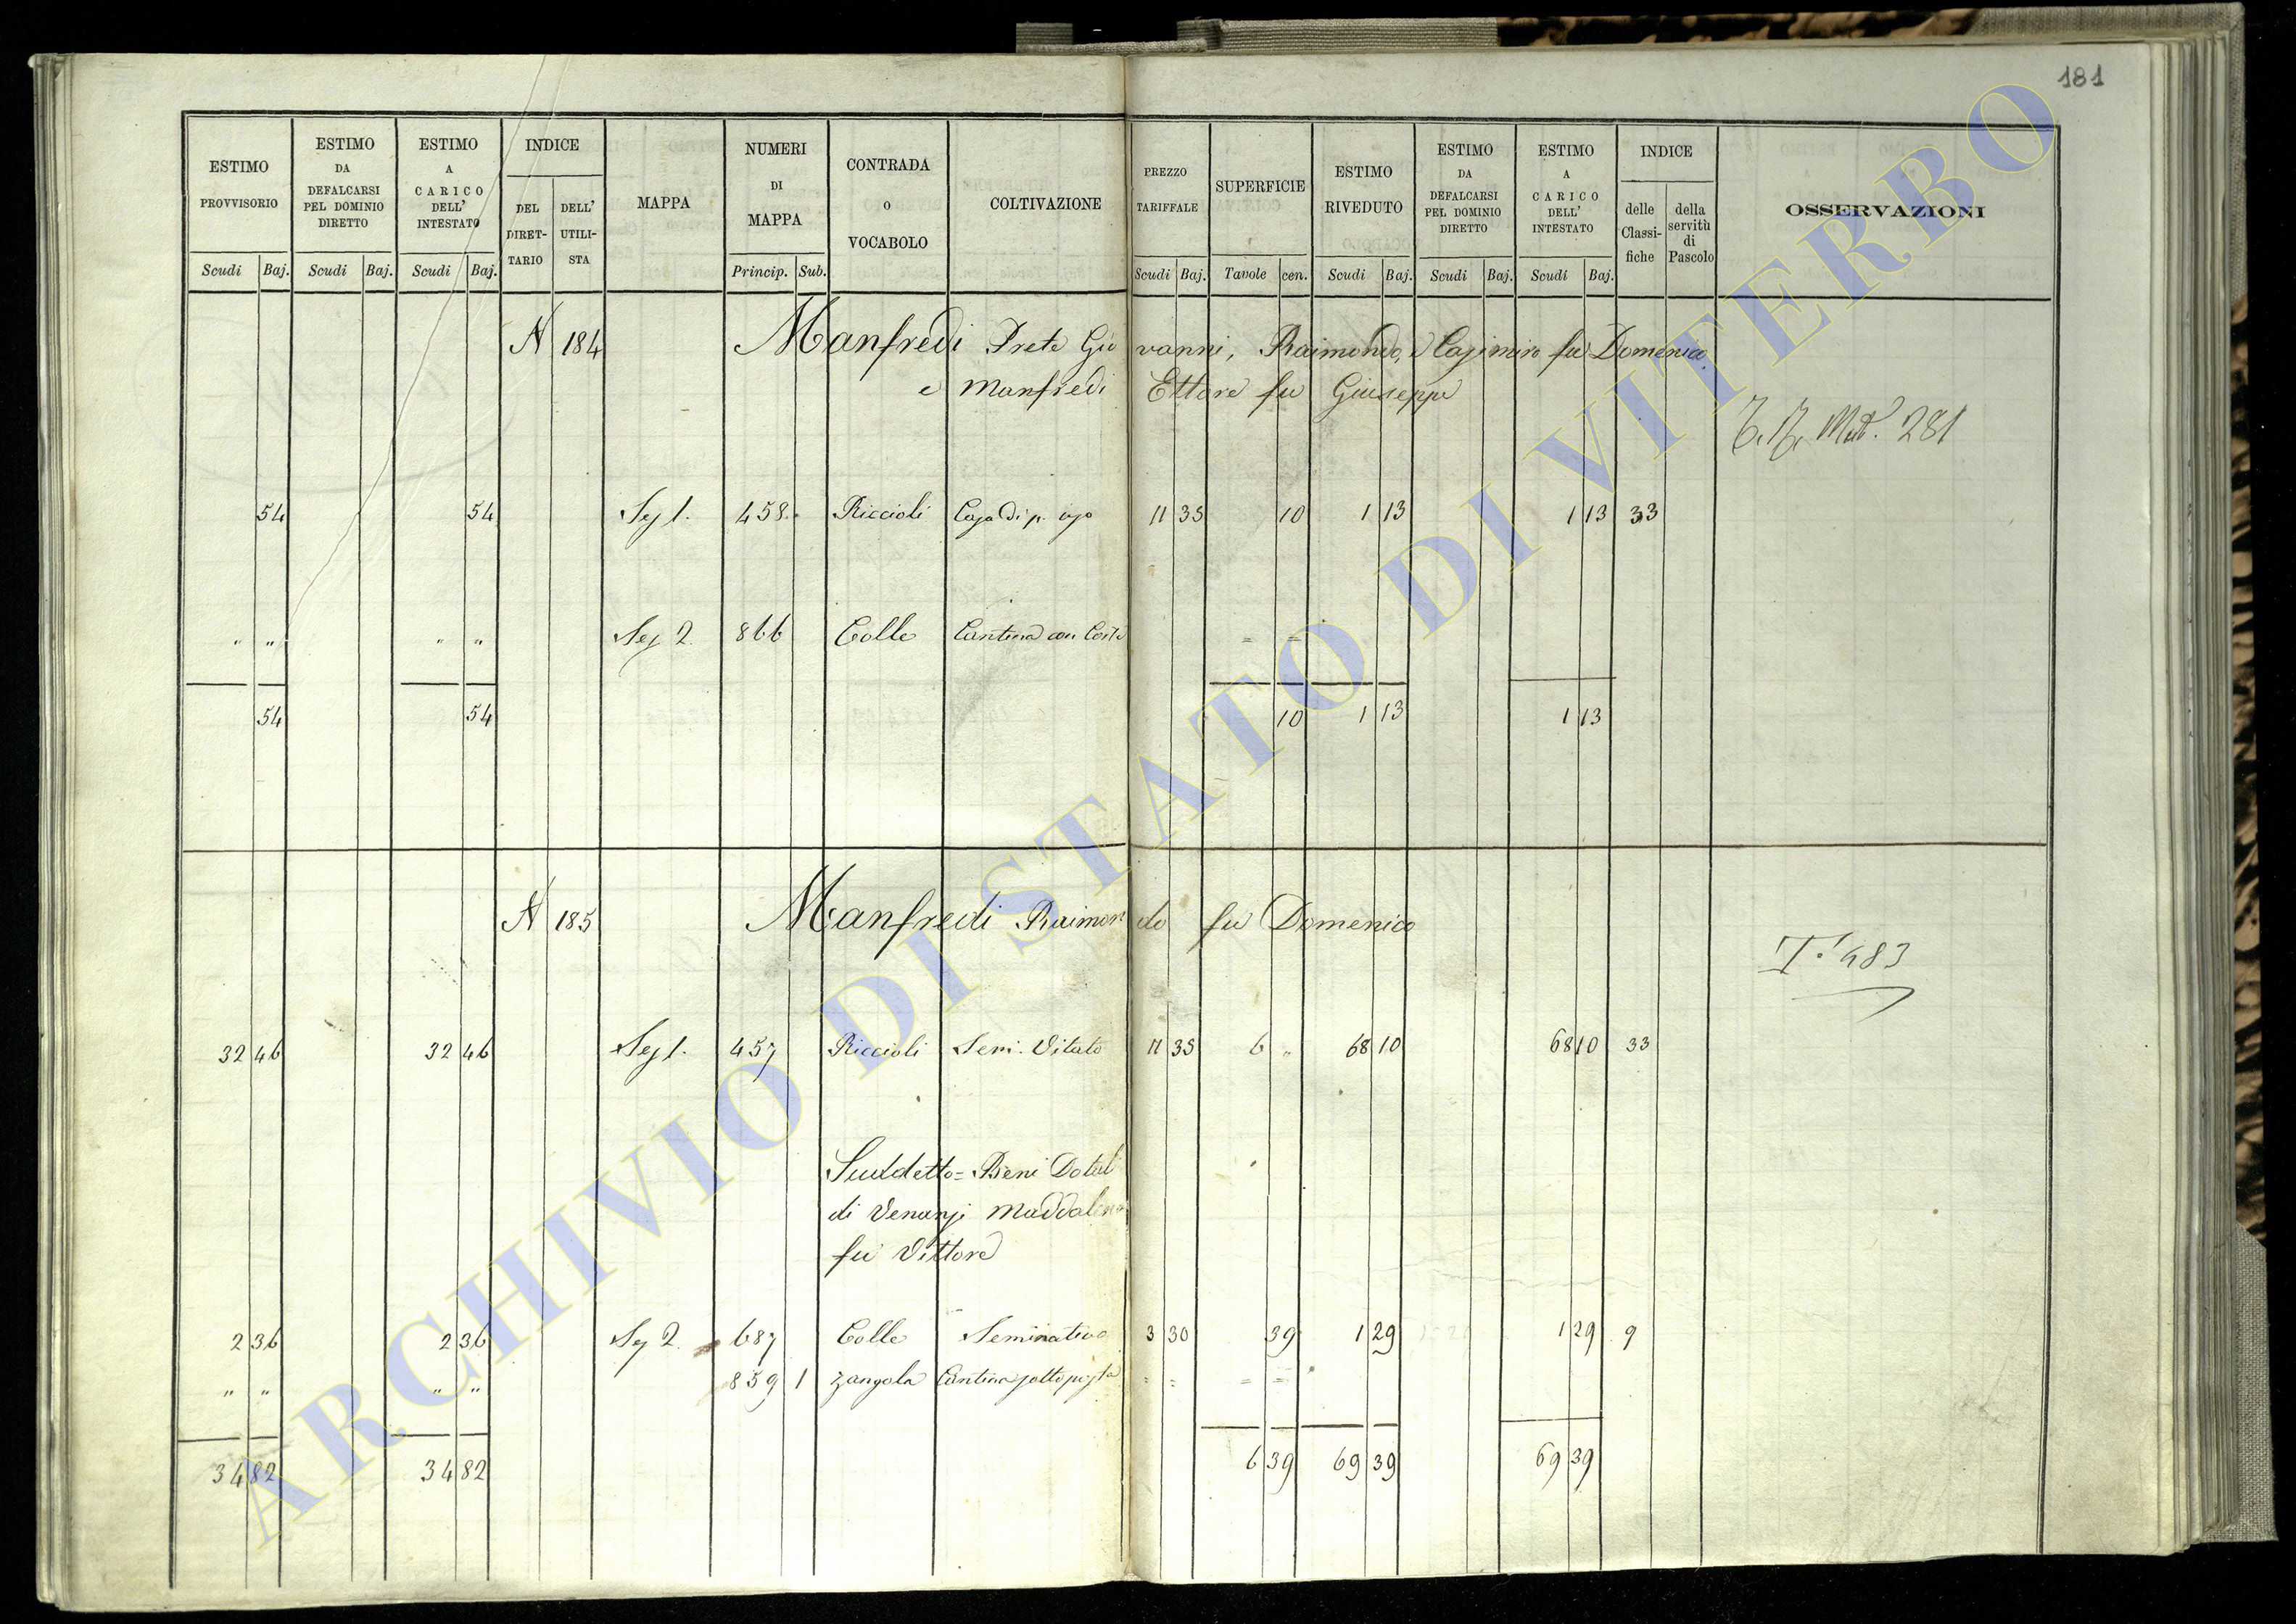 181
ESTIMO PROVVISORIO Scudi Baj.
ESTIMO DA DEFALCARSI PEL DOMINIO DIRETTO Scudi Baj.
ESTIMO A CARICO DELL' INTESTATO Scudi Baj.
INDICE DEL DIRETTARIO DELL' UTILISTA
MAPPA
NUMERI DI MAPPA Princip. Sub.
CONTRADA O VOCABOLO
COLTIVAZIONE
PREZZO TARIFFALE Scudi Baj.
SUPERFICIE Tavole cen.
ESTIMO RIVEDUTO Scudi Baj.
ESTIMO DA DEFALCARSI PEL DOMINIO DIRETTO Scudi Baj.
ESTIMO A CARICO DELL' INTESTATO Scudi Baj.
INDICE delle Classifiche della servitù di Pascolo
OSSERVAZIONI
N 184 Manfredi Prete Giovanni, Raimondo, e Casimiro fu Domenico
e Manfredi Ettore fu Giuseppe
281
54 54 Sez 1. 458. Riccioli Casa di p. uso 11 35 10 1 13 1 13 33
" " " " Sez 2. 866 Colle Cantina con Corte = =
54 54 10 1 13 1 13
N 185 Manfredi Raimondo fu Domenico
T. 483
32 46 32 46 Sez 1. 457 Riccioli Semi. Vitato 11 35 6 " 68 10 68 10 33
Suddetto = Beni Dotali
di Venanzi Maddalena
fu Vittore
2 36 2 36 Sez 2. 687 Colle Seminativo 3 30 39 1 29 1 29 9
" " " " 859 1 Zangola Cantina sottoposta = = = =
34 82 34 82 6 39 69 39 69 39
ARCHIVIO DI STATO DI VITERBO